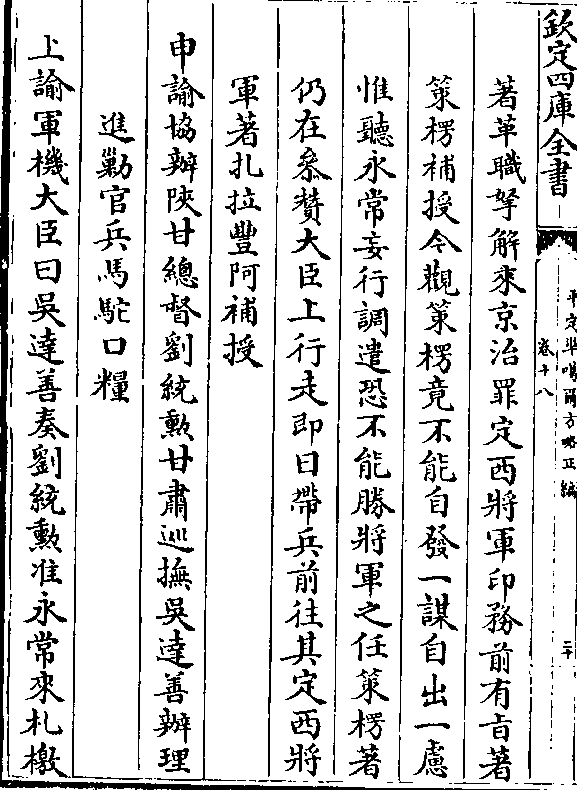 欽定四庫全書
平定準噶爾方略正編
卷十八
二十
著革職拏解來京治罪定西將軍印務前有旨著
策楞補授今觀策楞竟不能自發一謀自出一慮
惟聽永常妄行調遣恐不能勝將軍之任策楞著
仍在叅贊大臣上行走即日帶兵前往其定西將
軍著扎拉豐阿補授
申諭協辦陝甘總督劉統勲甘肅巡撫吳達善辦理
進勦官兵馬駝口糧
上諭軍機大臣曰吳達善奏劉統勲准永常來札檄